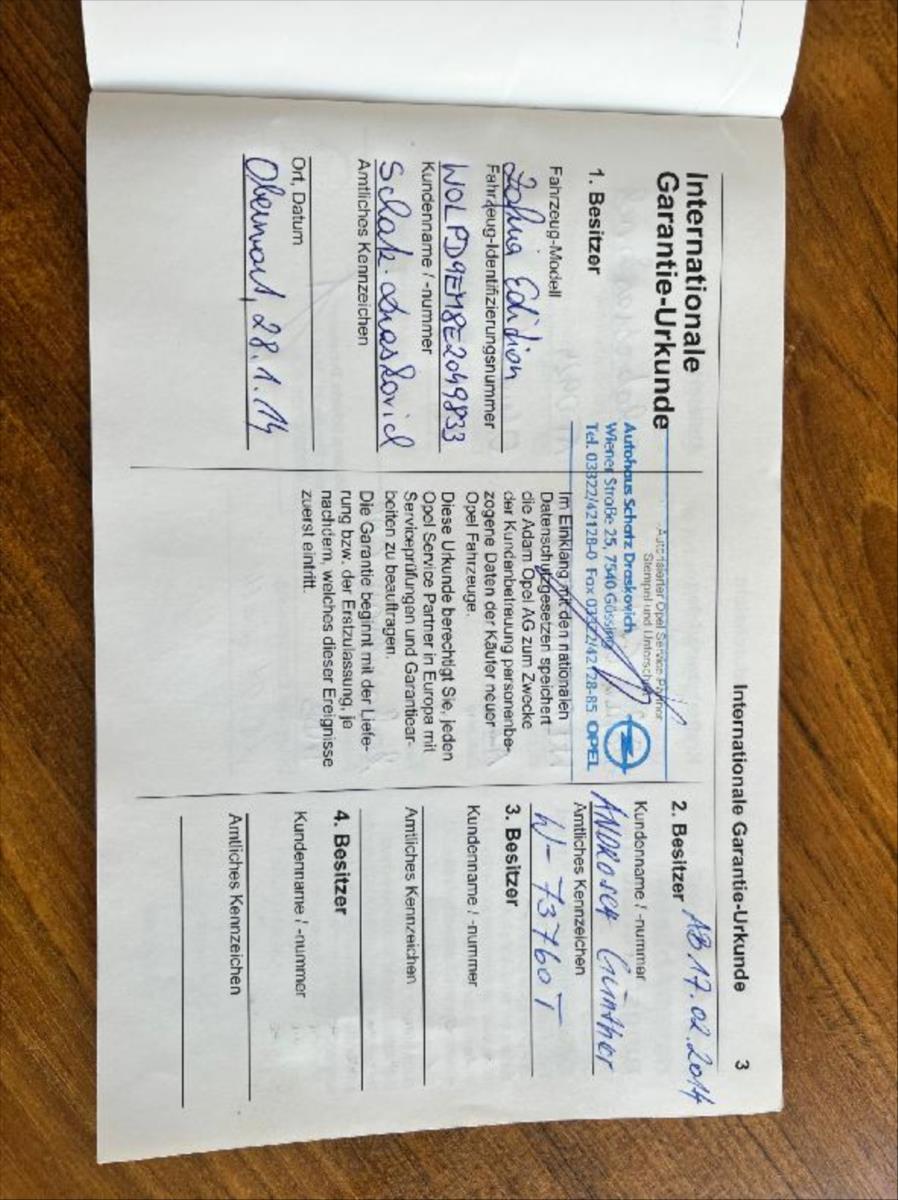 Internationale Garantie-Urkunde 3
Internationale
Garantie-Urkunde
1. Besitzer
Fahrzeug-Modell
Zafira Edition
Fahrzeug-Identifizierungsnummer
W0LPD9EM8E2049833
Kundenname / -nummer
Schak. Draskovic
Amtliches Kennzeichen
Ort, Datum
Oberwart, 28.1.14
Autorisierter Opel Service Partner
Stempel und Unterschrift
Autohaus Schatz Draskovich
Wiener Straße 25, 7540 Güssing
Tel. 03322/42128-0 Fax 03322/42128-85 OPEL
Im Einklang mit den nationalen
Datenschutzgesetzen speichert
die Adam Opel AG zum Zwecke
der Kundenbetreuung personenbe-
zogene Daten der Käufer neuer
Opel Fahrzeuge.
Diese Urkunde berechtigt Sie, jeden
Opel Service Partner in Europa mit
Serviceprüfungen und Garantiear-
beiten zu beauftragen.
Die Garantie beginnt mit der Liefe-
rung bzw. der Erstzulassung, je
nachdem, welches dieser Ereignisse
zuerst eintritt.
2. Besitzer AB 17.02.2014
Kundenname / -nummer
ANDROSCH Günther
Amtliches Kennzeichen
W-73760T
3. Besitzer
Kundenname / -nummer
Amtliches Kennzeichen
4. Besitzer
Kundenname / -nummer
Amtliches Kennzeichen